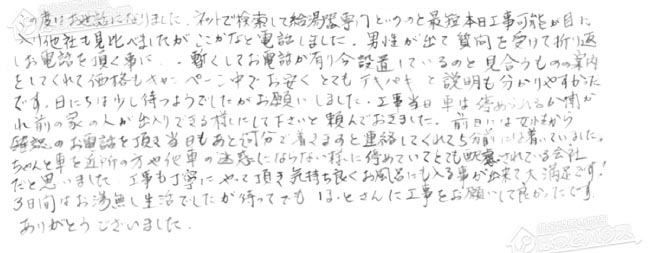 この度はお世話になりました。ネットで検索して給湯器専門というのと最短本日工事可能が目に
入り他社も見比べましたがここかなと電話しました。男性が出て質問を受けて折り返
しお電話を頂く事に・・暫くしてお電話が有り今設置しているのと見合うものの案内
をしてくれて価格もキャンペーン中でお安くとてもテキパキと説明も分かりやすかった
です。日にちは少し待つようでしたがお願いしました。工事当日車は停められるか聞か
れ前の家の人が出入りできる様にして下さいと頼んでおきました。前日には女性から
確認のお電話を頂き当日もあと何分で着きますと連絡してくれて5分前には着いていました。
ちゃんと車を近所の方や他車の迷惑にならない様に停めていてとても されている会社
だと思いました。工事も丁寧にやって頂き気持ち良くお風呂にも入る事が出来て大満足です!
3日間はお湯無し生活でしたが待ってでも ほっとさんに工事をお願いして良かったです。
ありがとうございました。